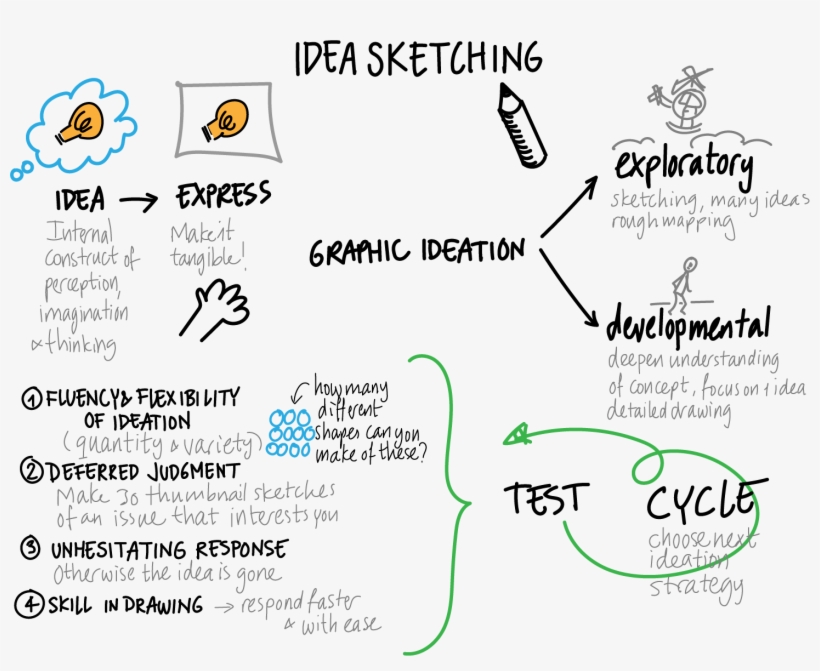 IDEA SKETCHING
IDEA → EXPRESS
Internal
construct of
perception,
imagination
& thinking
Make it
tangible!
GRAPHIC IDEATION
exploratory
sketching, many ideas
rough mapping
developmental
deepen understanding
of concept, focus on 1 idea
detailed drawing
① FLUENCY & FLEXIBILITY
OF IDEATION
(quantity & variety)
how many
different
shapes can you
make of these?
② DEFERRED JUDGMENT
Make 30 thumbnail sketches
of an issue that interests you
③ UNHESITATING RESPONSE
Otherwise the idea is gone
④ SKILL IN DRAWING → respond faster
& with ease
TEST
CYCLE
choose next
ideation
strategy